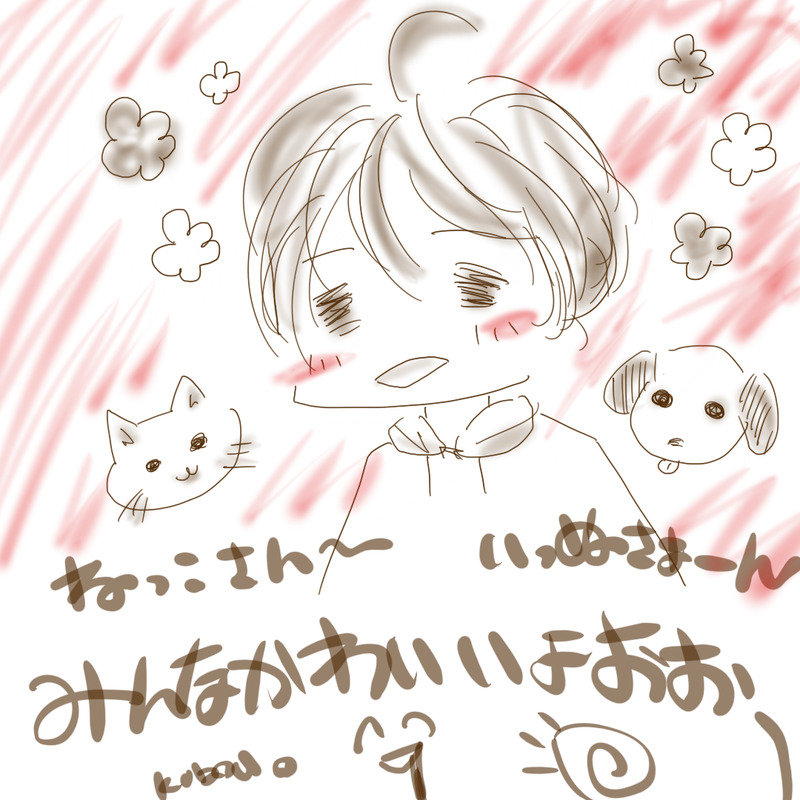 ねっこさん〜
いっぬさまーん
みんなかわいいよおお